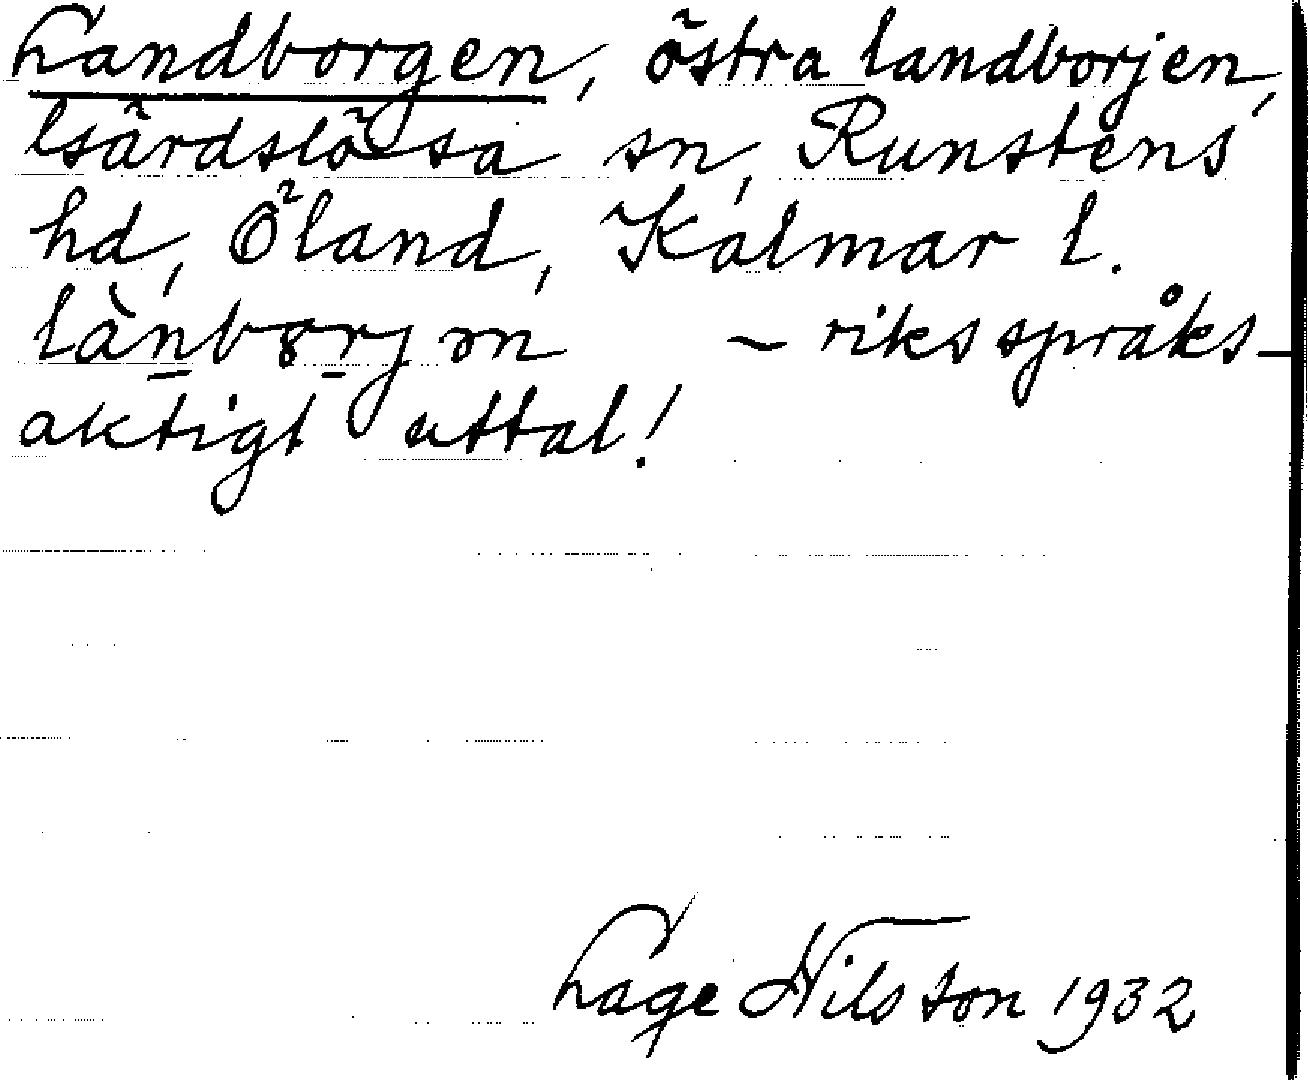 Landborgen, östra landborjen,
lsärdslösa sn, Runstens
hd, Öland, Kalmar l.
lànbɞrjən ~ riksspråks-
aktigt uttal!
Lage Nilsson 1932